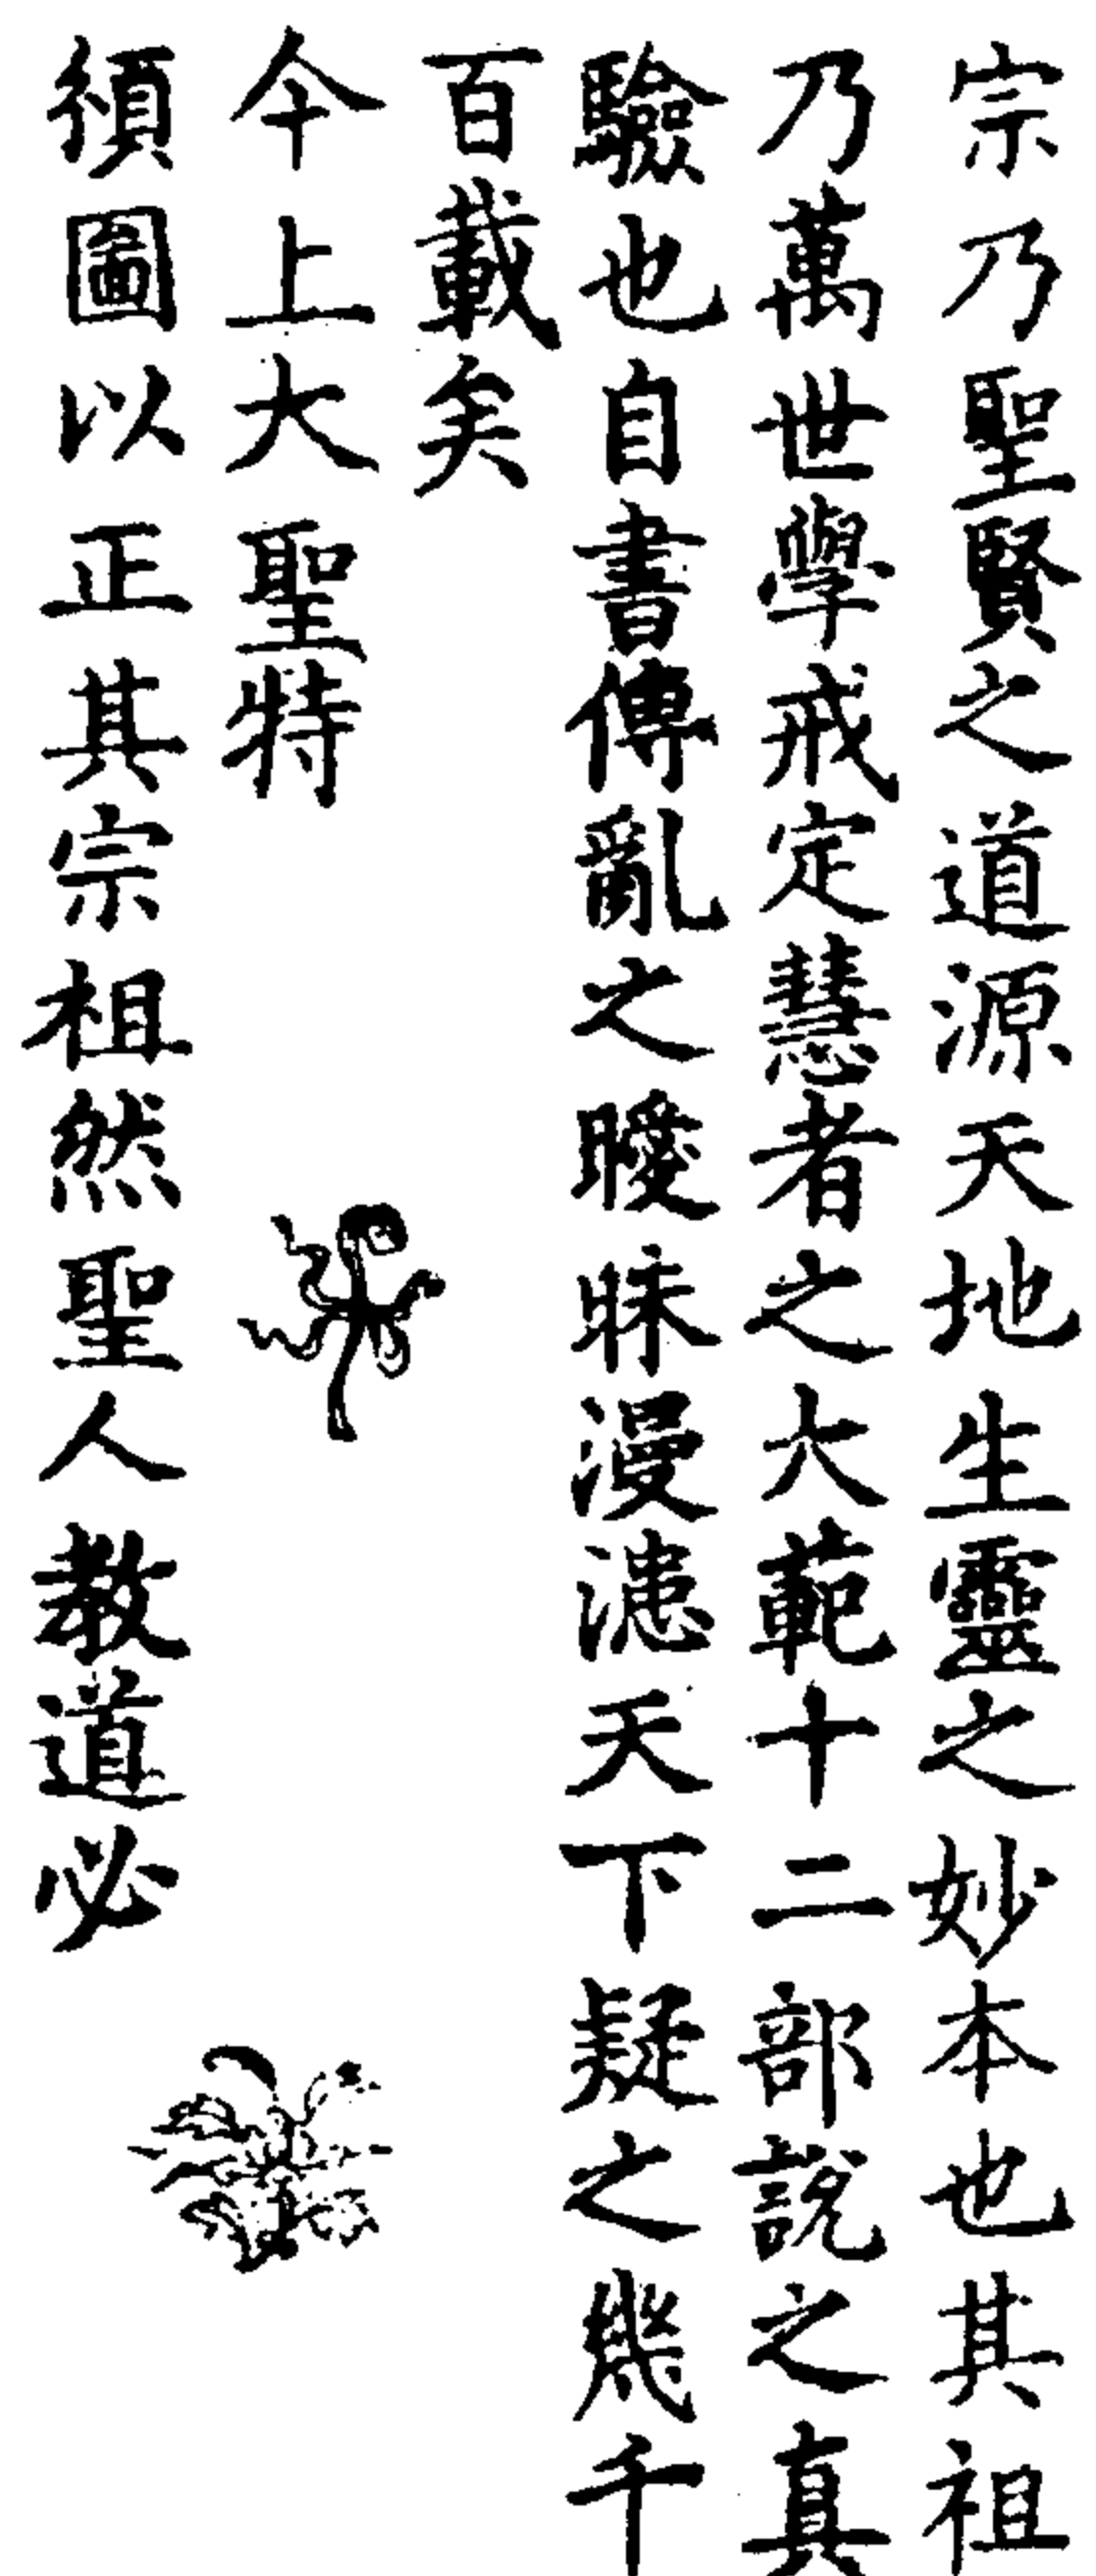 宗乃聖賢之道源天地生靈之妙本也其祖
乃萬世學戒定慧者之大範十二部說之真
驗也自書傳亂之曖昧漫漶天下疑之幾千
百載矣
今上大聖特
頒圖以正其宗祖然聖人教道必